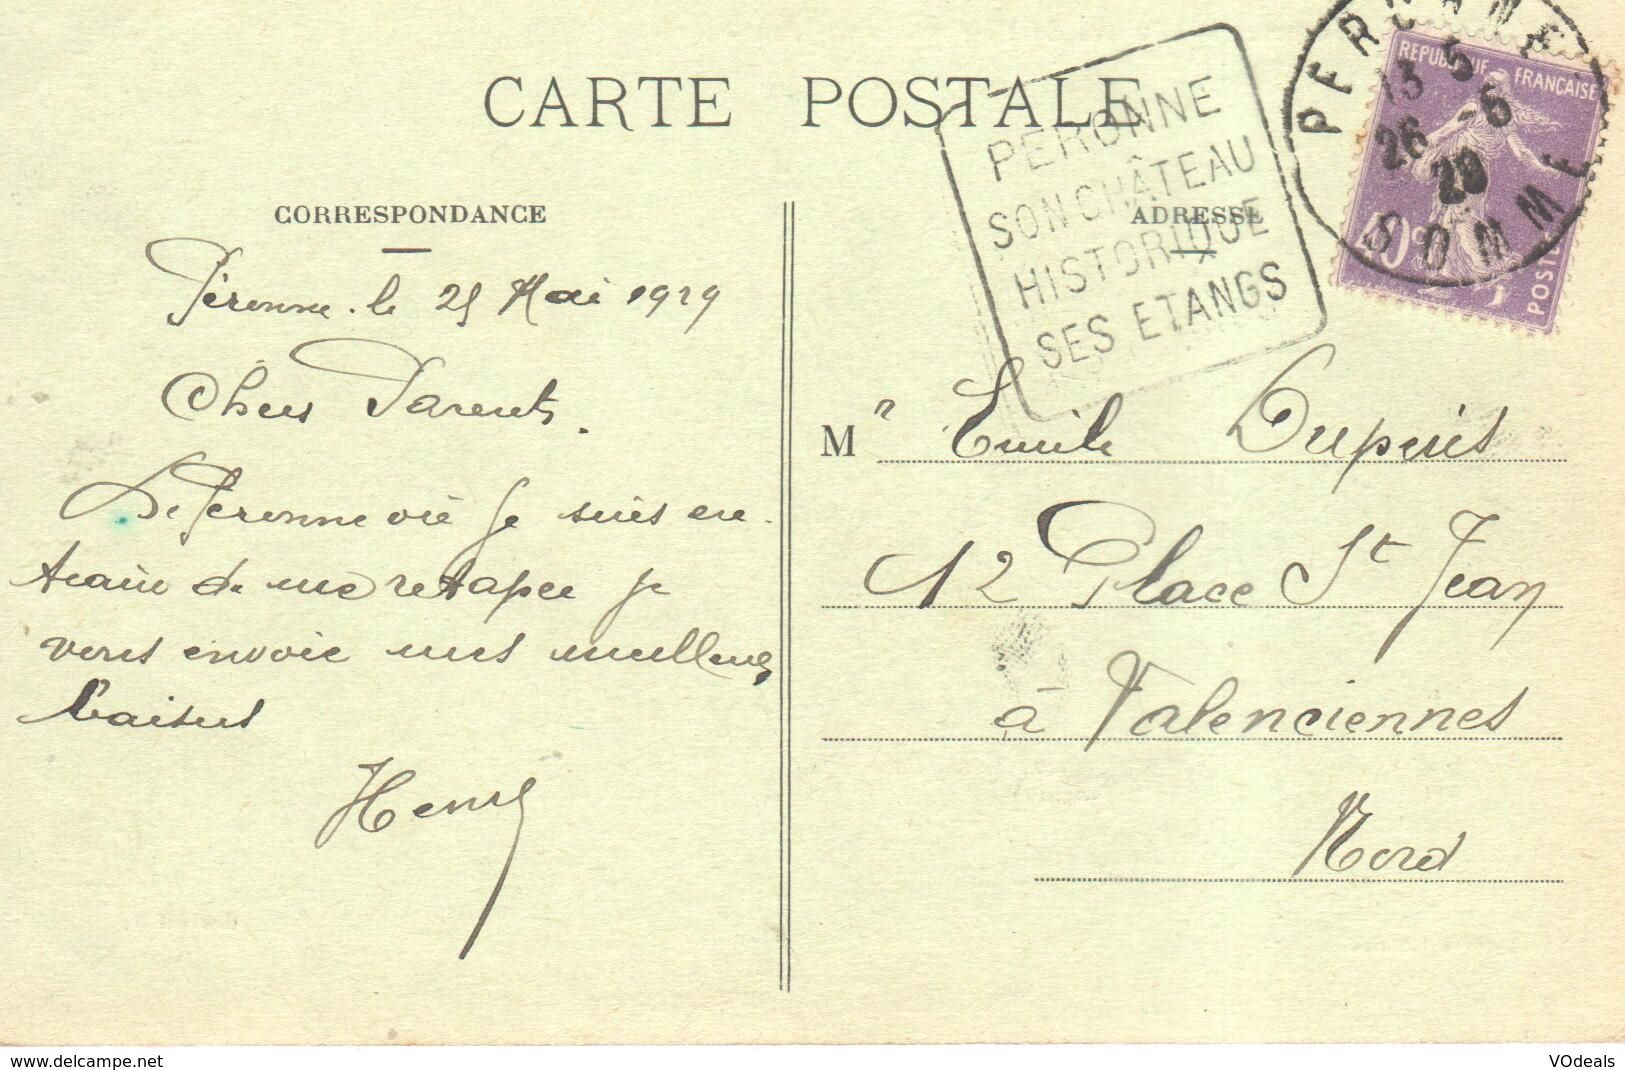 CARTE POSTALE
CORRESPONDANCE
Péronne. le 25 Mai 1929
Chers Parents.
De Peronne où je suis en
train de me retaper je
vous envoie mes meilleurs
baisers
Henry
PERONNE
SON CHÂTEAU
HISTORIQUE
SES ETANGS
PERONNE
13 5
26 -6
29
SOMME
REPUBLIQUE FRANÇAISE
40c
POSTES
ADRESSE
Mr Emile Duperis
12 Place St Jean
à Valenciennes
Nord
www.delcampe.net
VOdeals